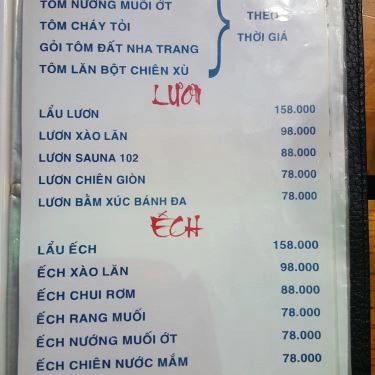 TÔM NƯỚNG MUỐI ỚT
TÔM CHÁY TỎI
GỎI TÔM ĐẤT NHA TRANG
TÔM LĂN BỘT CHIÊN XÙ
THEO
THỜI GIÁ
LƯƠN
LẨU LƯƠN 158.000
LƯƠN XÀO LĂN 98.000
LƯƠN SAUNA 102 88.000
LƯƠN CHIÊN GIÒN 78.000
LƯƠN BẰM XÚC BÁNH ĐA 78.000
ẾCH
LẨU ẾCH 158.000
ẾCH XÀO LĂN 98.000
ẾCH CHUI RƠM 88.000
ẾCH RANG MUỐI 78.000
ẾCH NƯỚNG MUỐI ỚT 78.000
ẾCH CHIÊN NƯỚC MẮM 78.000